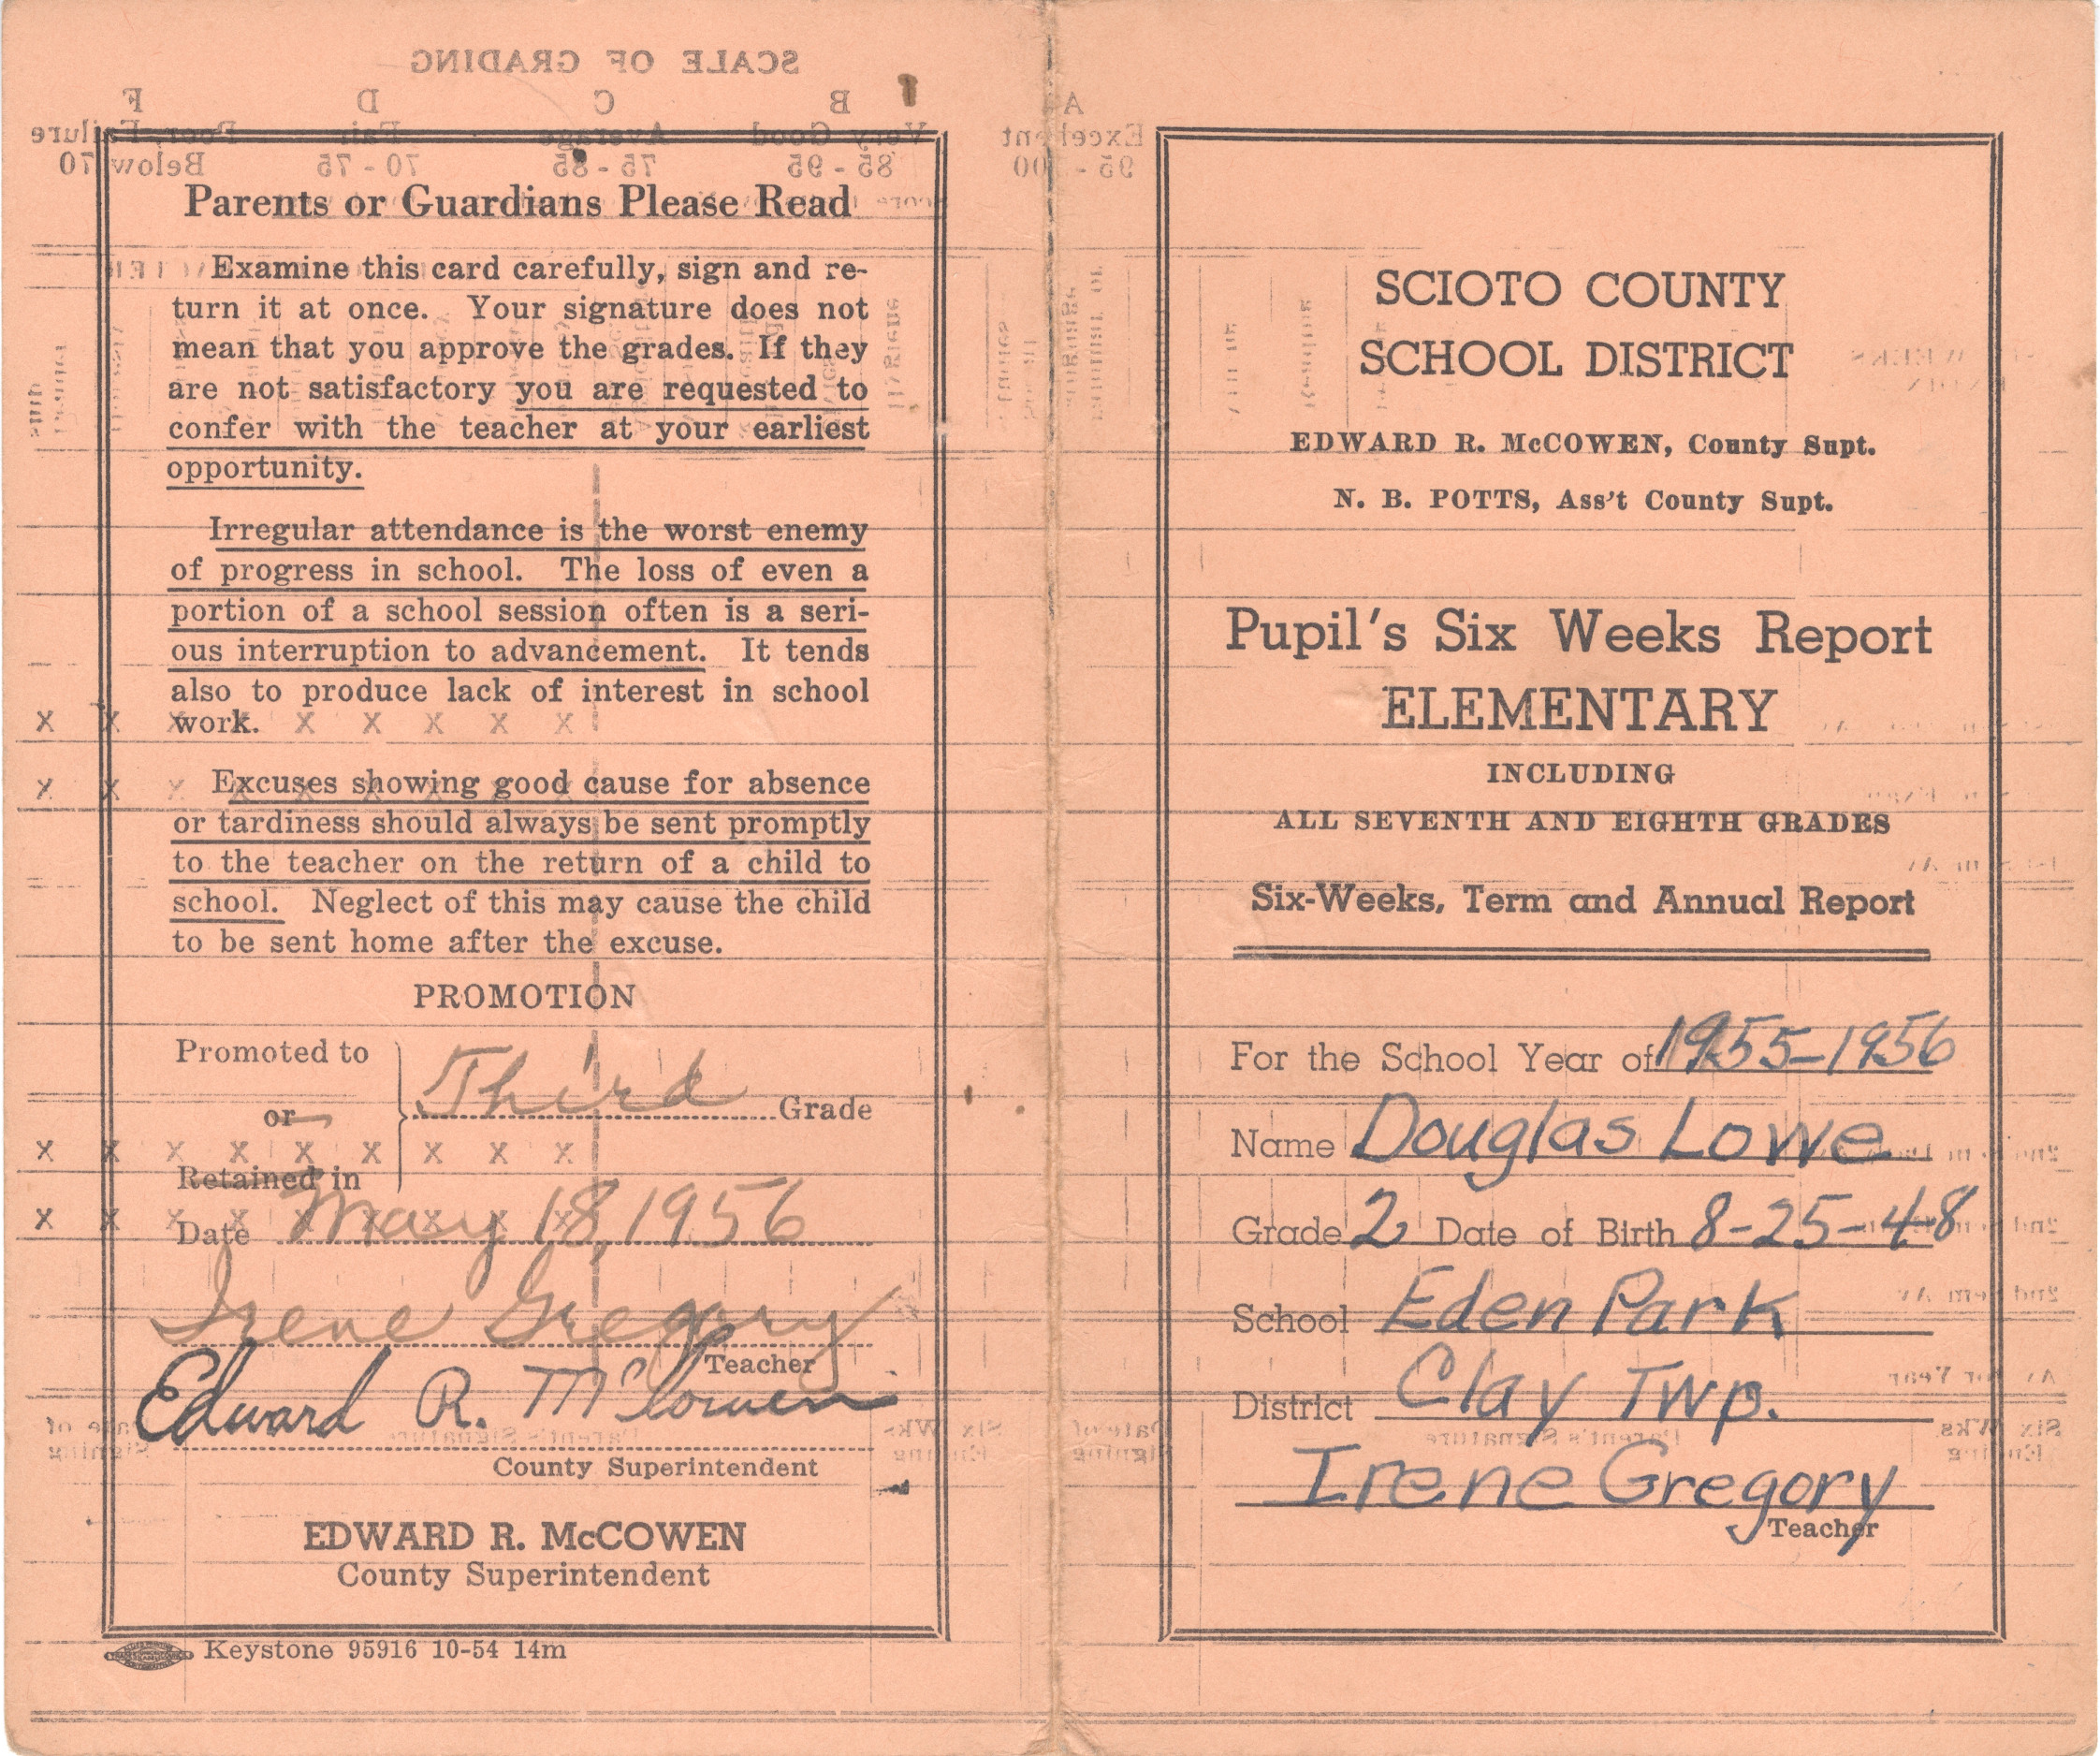 Parents or Guardians Please Read
Examine this card carefully, sign and re-
turn it at once. Your signature does not
mean that you approve the grades. If they
are not satisfactory you are requested to
confer with the teacher at your earliest
opportunity.
Irregular attendance is the worst enemy
of progress in school. The loss of even a
portion of a school session often is a seri-
ous interruption to advancement. It tends
also to produce lack of interest in school
work.
Excuses showing good cause for absence
or tardiness should always be sent promptly
to the teacher on the return of a child to
school. Neglect of this may cause the child
to be sent home after the excuse.
PROMOTION
Promoted to
or
Third Grade
Retained in
Date May 18, 1956
Irene Gregory
Teacher
Edward R. McCowen
County Superintendent
EDWARD R. McCOWEN
County Superintendent
Keystone 95916 10-54 14m
SCIOTO COUNTY
SCHOOL DISTRICT
EDWARD R. McCOWEN, County Supt.
N. B. POTTS, Ass't County Supt.
Pupil's Six Weeks Report
ELEMENTARY
INCLUDING
ALL SEVENTH AND EIGHTH GRADES
Six-Weeks, Term and Annual Report
For the School Year of 1955-1956
Name Douglas Lowe
Grade 2 Date of Birth 8-25-48
School Eden Park
District Clay Twp.
Irene Gregory
Teacher
SCALE OF GRADING
A B C D F
Excellent Very Good Average Fair Poor, Failure
95 - 100 85 - 95 75 - 85 70 - 75 Below 70